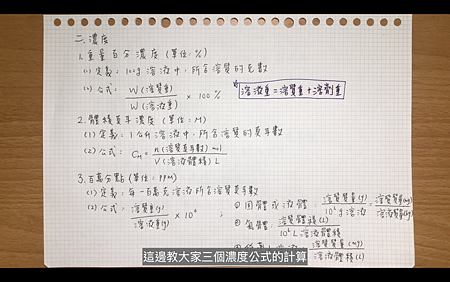 二. 濃度
1. 重量百分濃度 (單位: %)
(1) 定義: 100g 溶液中, 所含溶質的克數
(2) 公式: W(溶質重) / W(溶液重) × 100%
溶液重=溶質重+溶劑重
2. 體積莫耳濃度 (單位: M)
(1) 定義: 1公升溶液中, 所含溶質的莫耳數
(2) 公式: CM = n(溶質莫耳數) mol / V(溶液體積) L
3. 百萬分點 (單位: PPM)
(1) 定義: 每一百萬克溶液所含溶質莫耳數
(2) 公式: 溶質重(g) / 溶液重(g) × 10⁶ ;
① 固體或液體: 溶質質量(g) / 10⁶ g 溶液 =
② 氣體: 溶質體積(L) / 10⁶ L 溶液體積
溶質重(mg) / 溶液體積(L)
這邊教大家三個濃度公式的計算